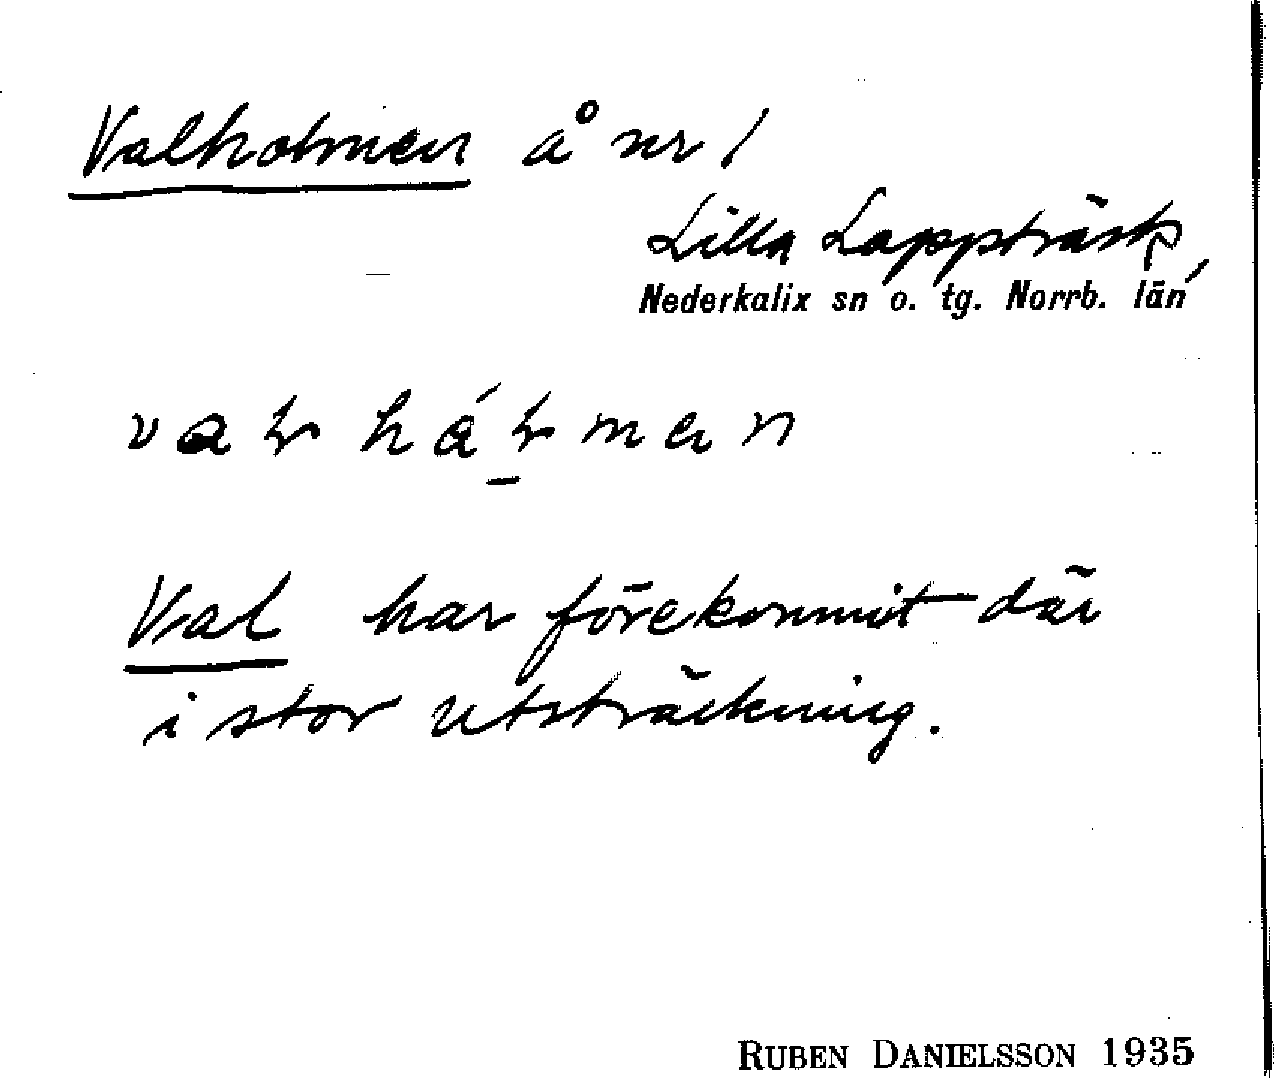 Valholmen å nr 1
Lilla Lappträsk,
Nederkalix sn o. tg. Norrb. län
Val har förekommit där
i stor utsträckning.
RUBEN DANIELSSON 1935